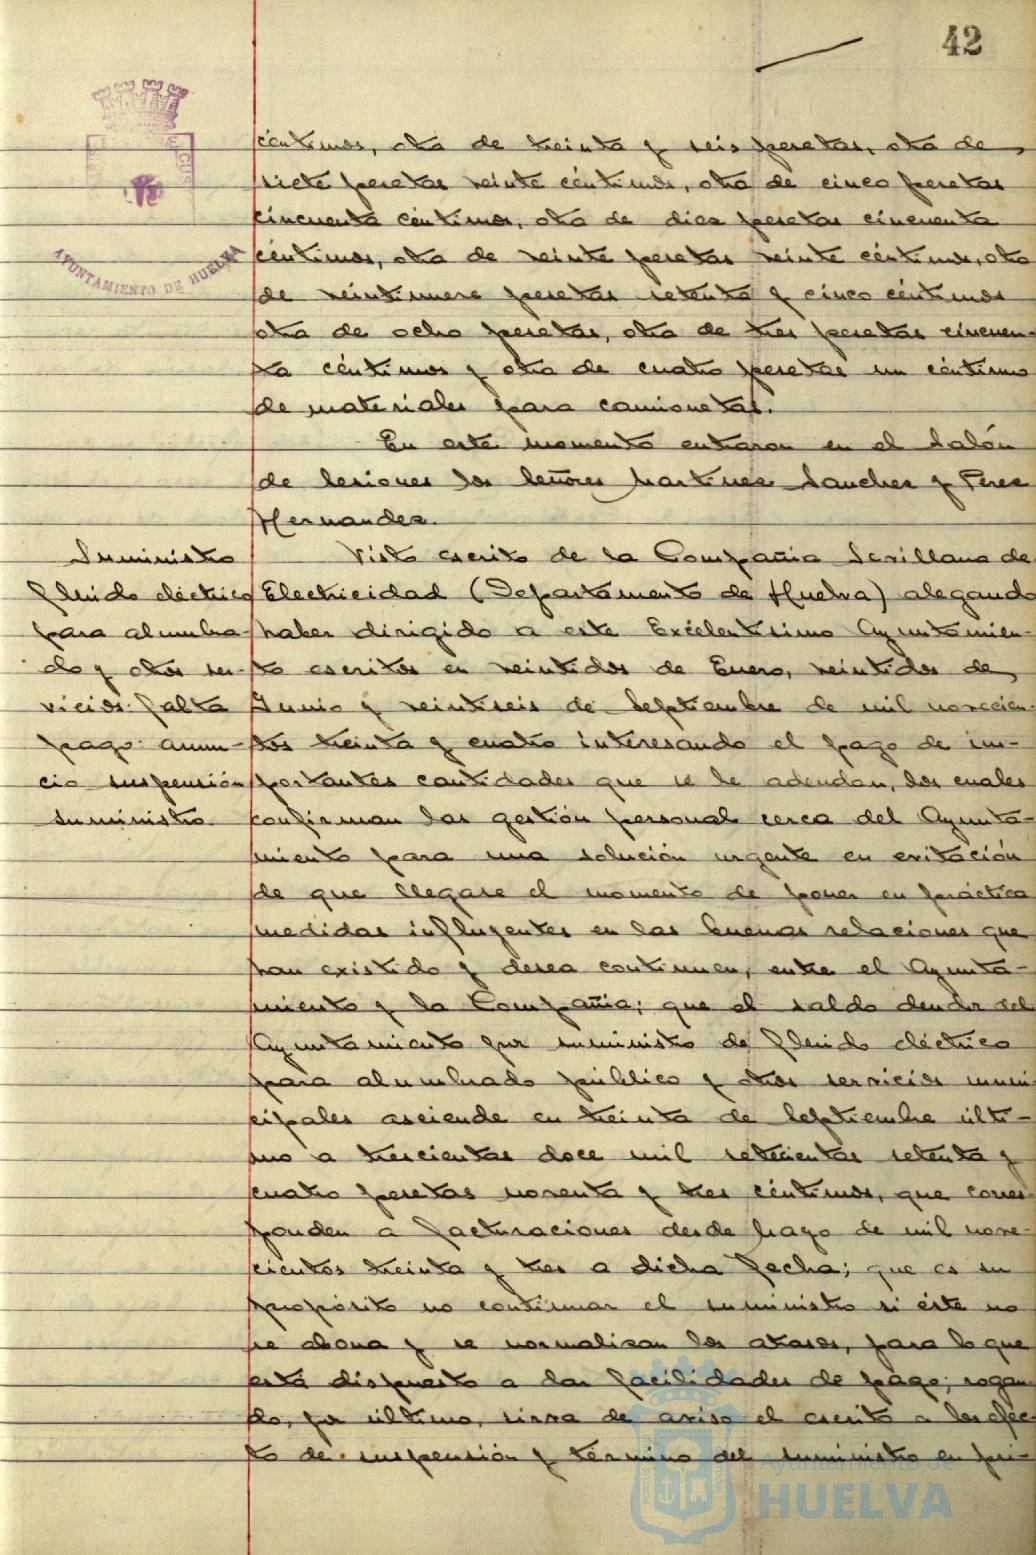 42
AYUNTAMIENTO DE HUELVA
céntimos, otra de treinta y seis pesetas, otra de
siete pesetas veinte céntimos, otra de cinco pesetas
cincuenta céntimos, otra de diez pesetas cincuenta
céntimos, otra de veinte pesetas veinte céntimos, otra
de veintinueve pesetas setenta y cinco céntimos
otra de ocho pesetas, otra de tres pesetas cincuen-
ta céntimos y otra de cuatro pesetas un céntimo
de materiales para camionetas.
En este momento entraron en el Salón
de Sesiones los Señores Martinez Sanchez y Perez
Hernandez.
Suministro
fluido eléctrico
para alumbra-
do y otros ser-
vicios: falta
pago: anun-
cio suspensión
suministro
Visto escrito de la Compañia Sevillana de
Electricidad (Departamento de Huelva) alegando
haber dirigido a este Excelentisimo Ayuntamien-
to escritos en veintidos de Enero, veintidos de
Junio y veintiseis de Septiembre de mil novecien-
tos treinta y cuatro interesando el pago de im-
portantes cantidades que se le adeudan, los cuales
confirman las gestión personal cerca del Ayunta-
miento para una solución urgente en evitación
de que llegase el momento de poner en práctica
medidas influyentes en las buenas relaciones que
han existido y desea continuen, entre el Ayunta-
miento y la Compañia; que el saldo deudor del
Ayuntamiento por suministro de fluido eléctrico
para alumbrado público y otros servicios muni-
cipales asciende en treinta de Septiembre últi-
mo a trescientas doce mil setecientas setenta y
cuatro pesetas noventa y tres céntimos, que corres-
ponden a facturaciones desde Mayo de mil nove-
cientos treinta y tres a dicha fecha; que es su
propósito no continuar el suministro si éste no
se abona y se normalizan los atrasos, para lo que
está dispuesto a dar facilidades de pago; rogan-
do, por último, sirva de aviso el escrito a los efec-
to de suspensión y término del suministro en pri-
Ayuntamiento de
HUELVA